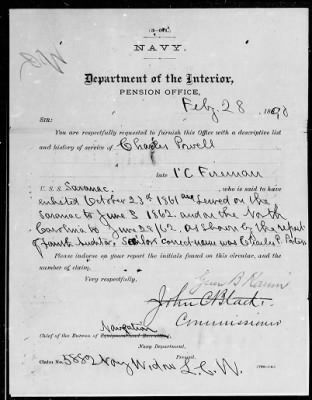 (3-081.)
NAVY.
Department of the Interior,
PENSION OFFICE,
Feby. 28, 1890
SIR:
You are respectfully requested to furnish this Office with a descriptive list
and history of service of Charles Powell
late 1"C Fireman
U. S. S. Saranac, who is said to have
enlisted October 23rd 1861 and served on the
Saranac to June 3 1862, and on the North
Carolina to June 28/62, as shown by the report
of fourth Auditor. Sailors correct name was Charles P.
Please indorse on your report the initials found on this circular, and the
number of claim.
Very respectfully,
John C Black
Commissioner
Navigation
Chief of the Bureau of Equipment and Recruiting,
Navy Department,
Present.
Claim No. 5882 Navy Widow L.C.W.